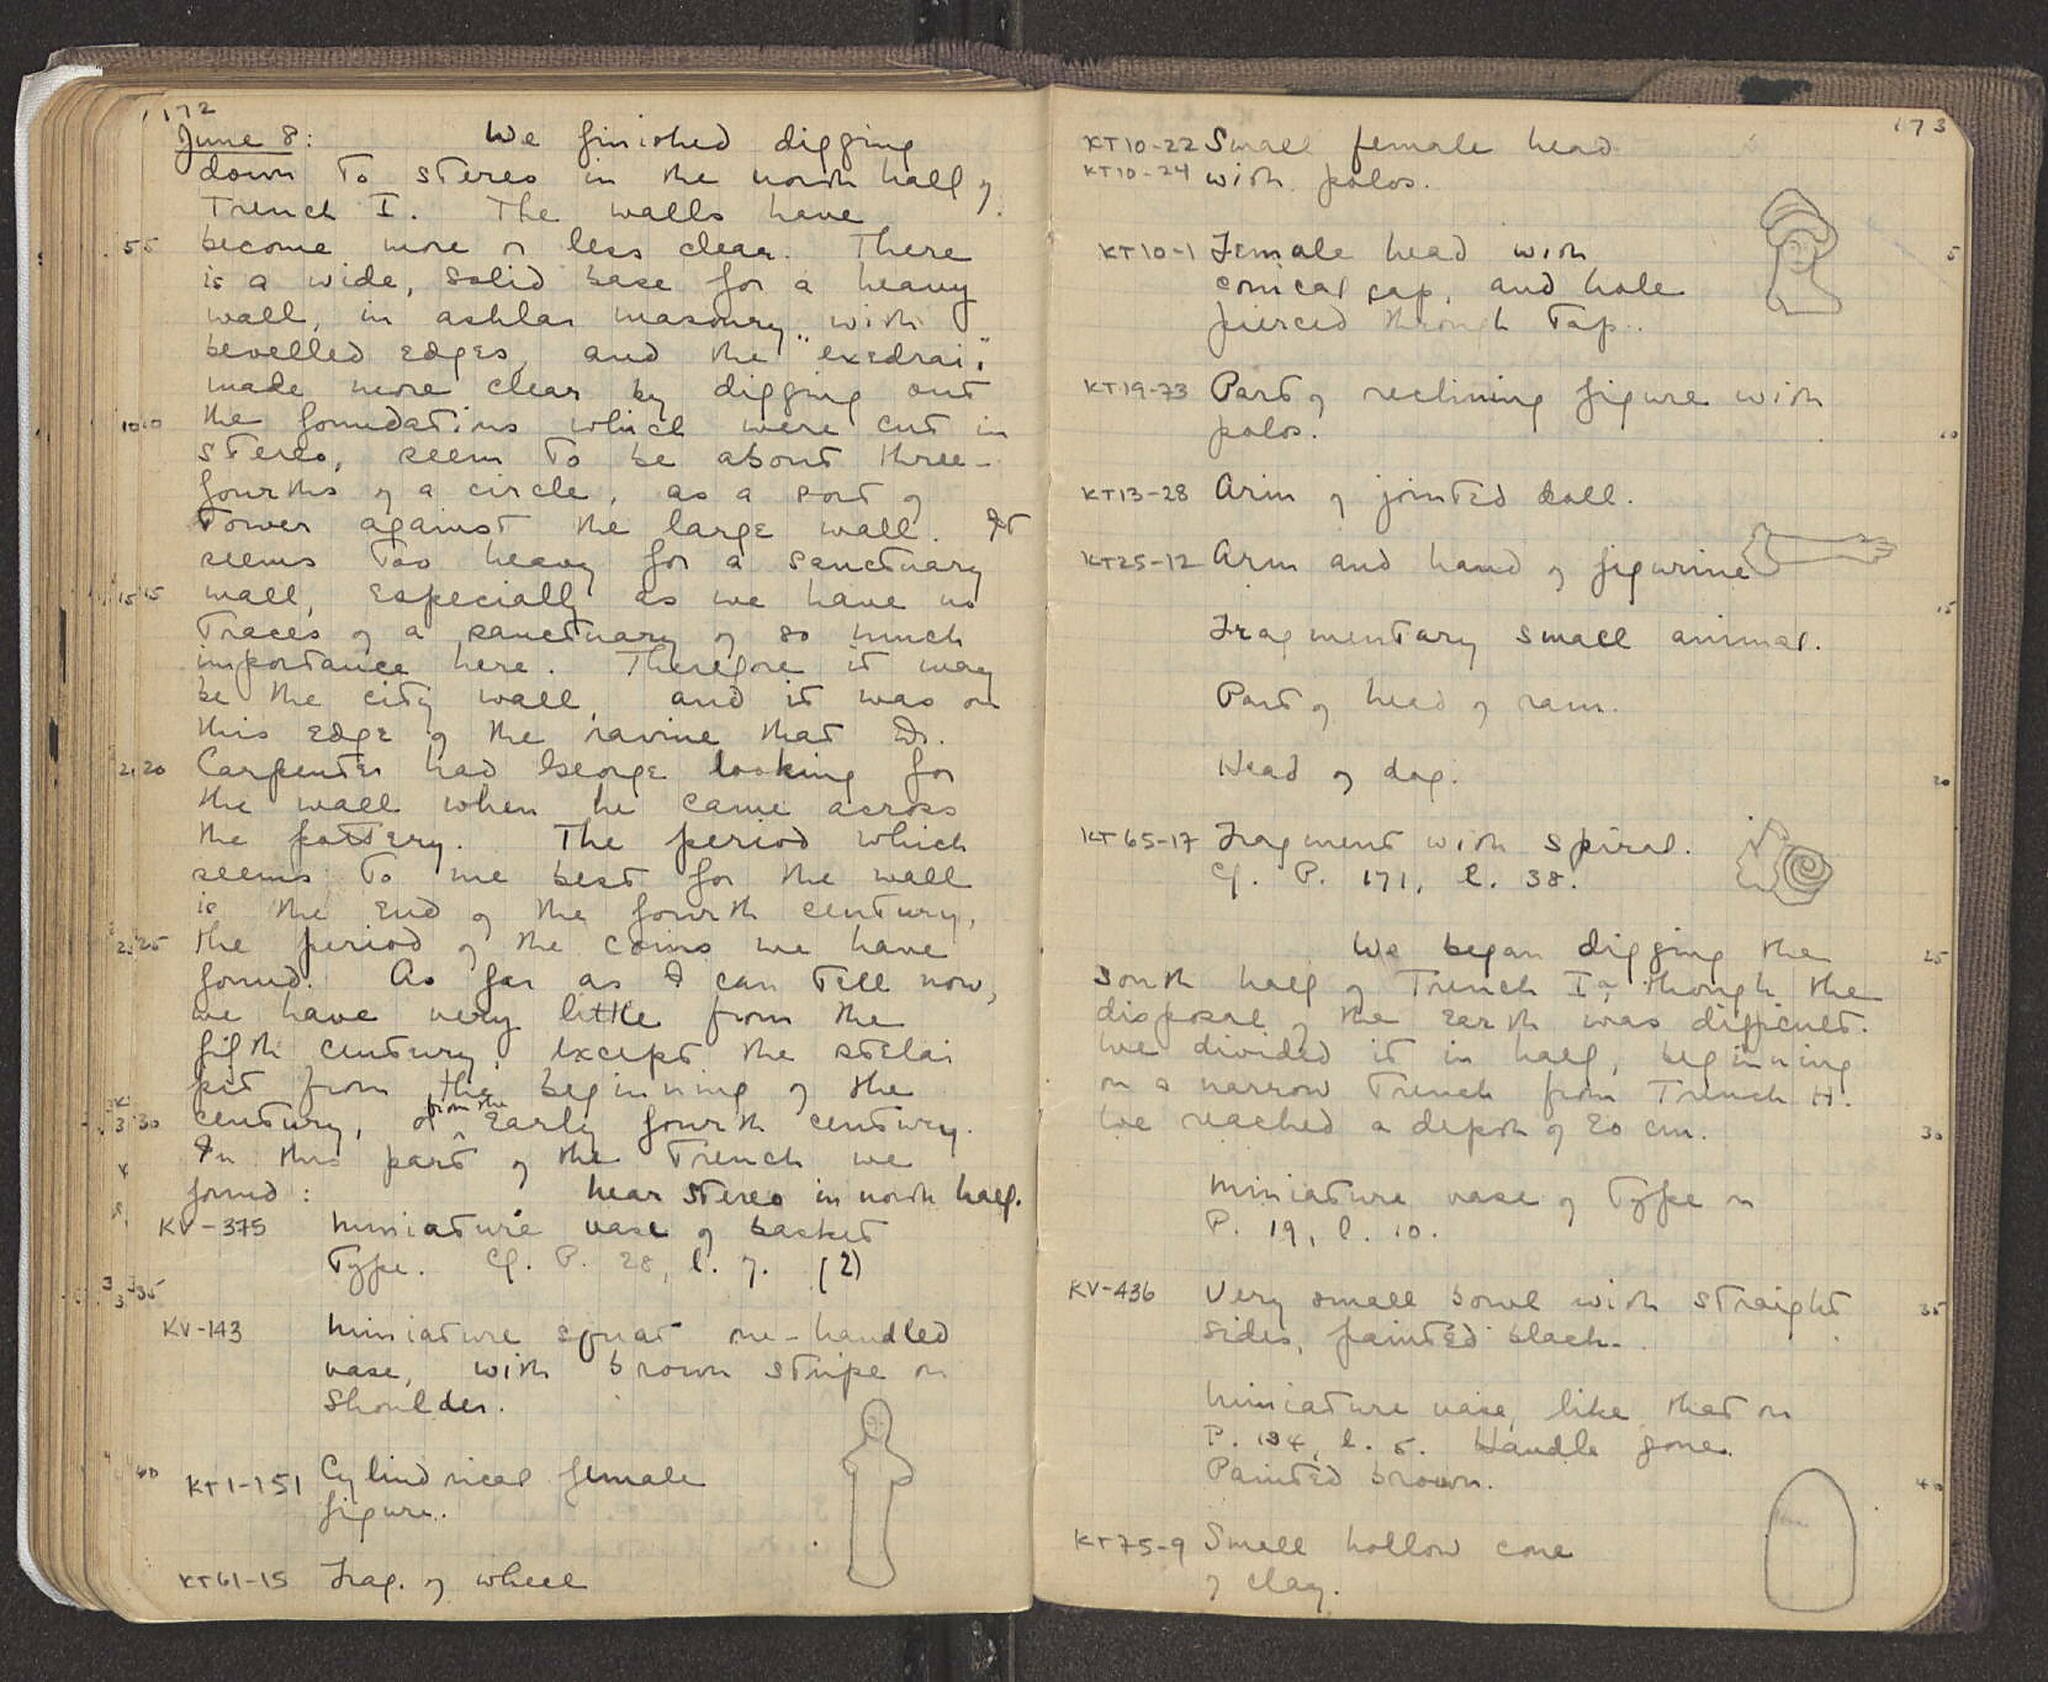 172
June 8: We finished digging
down to stereo in the north half of
Trench I. The walls have
5 become more or less clear. There
is a wide, solid base for a heavy
wall, in ashlar masonry, with
bevelled edges, and the "exedrai,"
made more clear by digging out
10 the foundations which were cut in
stereo, seem to be about three-
fourths of a circle, as a sort of
tower against the large wall. It
seems too heavy for a sanctuary
15 wall, especially as we have no
traces of a sanctuary of so much
importance here. Therefore it may
be the city wall, and it was on
this edge of the ravine that Dr.
20 Carpenter had George looking for
the wall when he came across
the pottery. The period which
seems to me best for the wall
is the end of the fourth century,
25 the period of the coins we have
found. As far as I can tell now,
we have very little from the
fifth century, except the stelai
pit from the beginning of the
30 century, or from the early fourth century.
In this part of the trench we
found: near stereo in north half.
KV-375 Miniature vase of basket
type. Cf. P. 28, l. 7. (2)
35
KV-143 Miniature squat one-handled
vase, with brown stripe on
shoulder.
40 KT1-151 Cylindrical female
figure.
KT61-15 Frag. of wheel
173
KT10-22 Small female head
KT10-24 with polos.
KT10-1 Female head with 5
conical cap, and hole
pierced through top.
KT19-73 Part of reclining figure with
polos. 10
KT13-28 Arm of jointed doll.
KT25-12 Arm and hand of figurine
15
Fragmentary small animal.
Part of head of ram.
Head of dog. 20
KT65-17 Fragment with spiral.
Cf. P. 171, l. 38.
We began digging the 25
south half of Trench I, though the
disposal of the earth was difficult.
We divided it in half, beginning
on a narrow trench from Trench H.
We reached a depth of 20 cm. 30
Miniature vase of type on
P. 19, l. 10.
KV-436 Very small bowl with straight 35
sides, painted black.
Miniature vase, like that on
P. 134, l. 5. Handle gone.
Painted brown. 40
KT75-9 Small hollow cone
of clay.